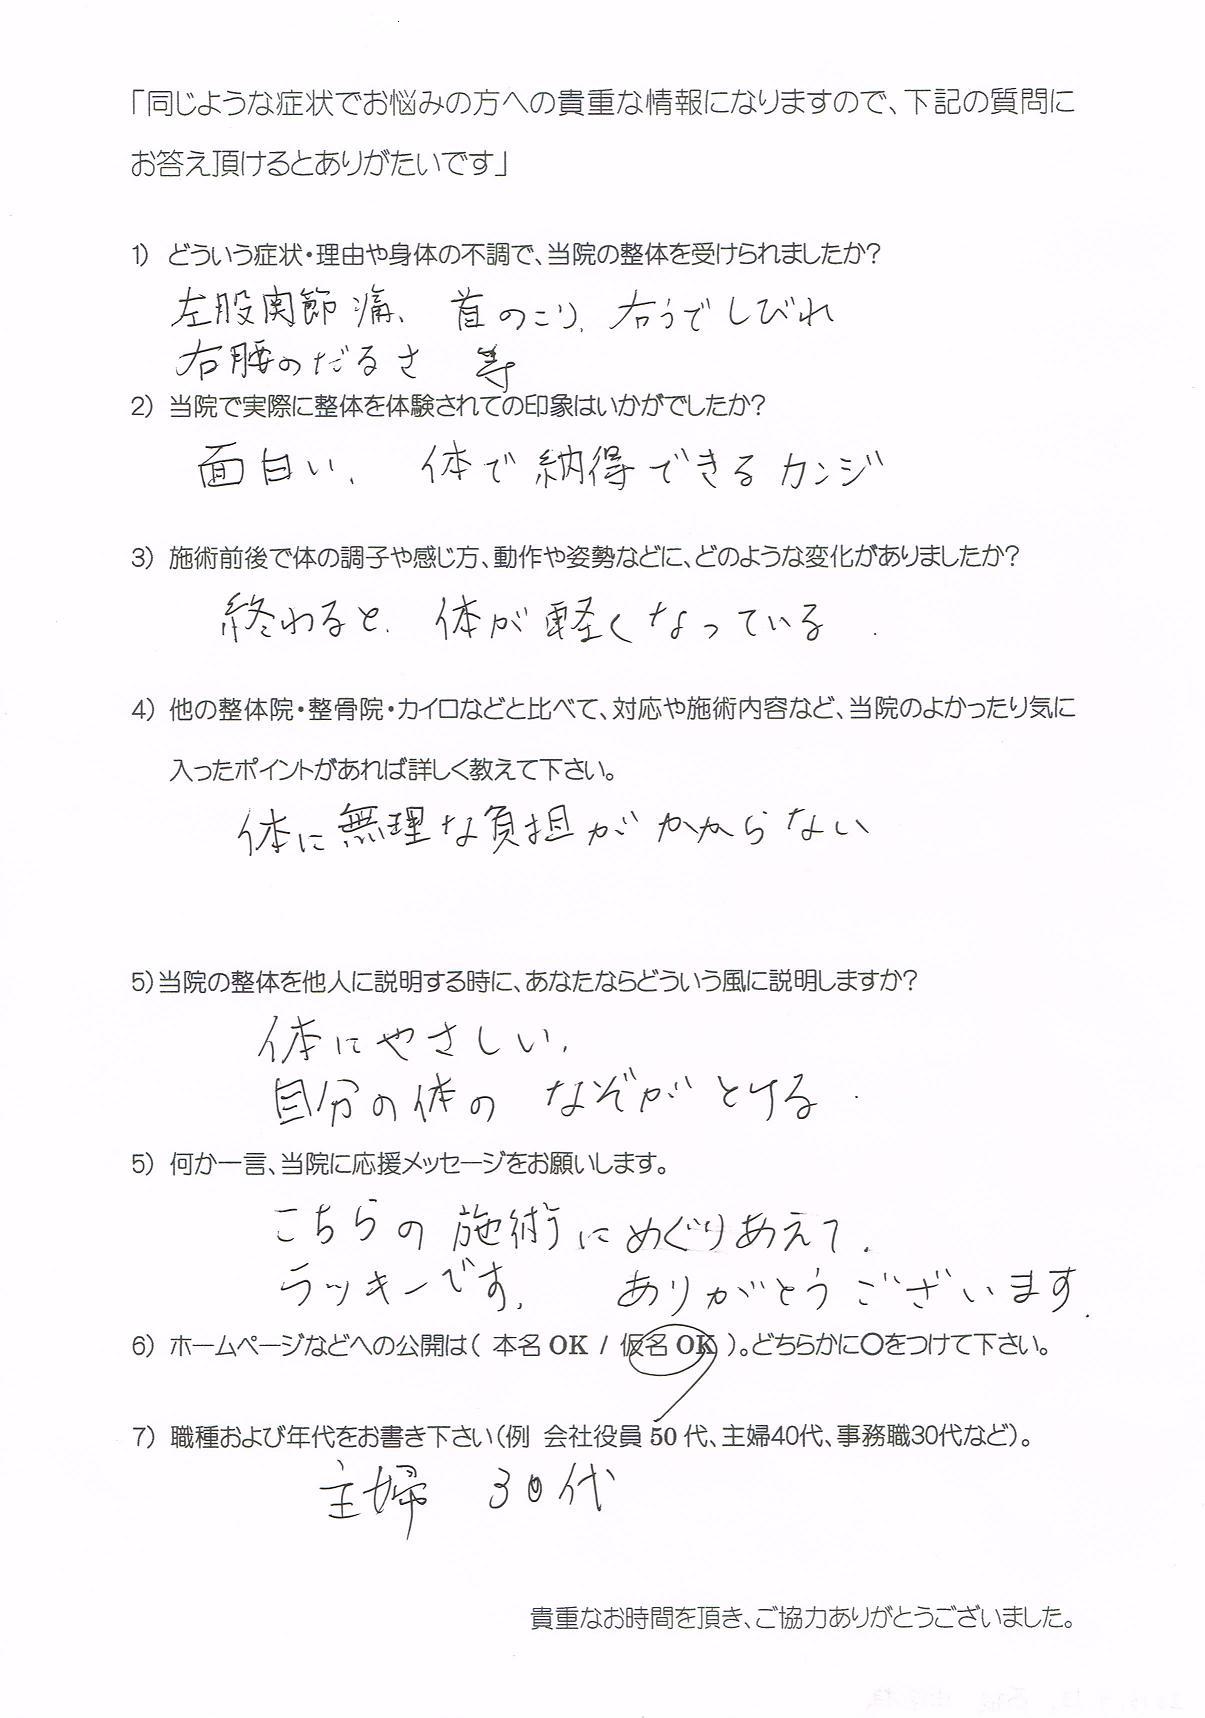 「同じような症状でお悩みの方への貴重な情報になりますので、下記の質問に
お答え頂けるとありがたいです」
1) どういう症状・理由や身体の不調で、当院の整体を受けられましたか?
左股関節痛、首のこり、右うでしびれ
右腰のだるさ 等
2) 当院で実際に整体を体験されての印象はいかがでしたか?
面白い、体で納得できるカンジ
3) 施術前後で体の調子や感じ方、動作や姿勢などに、どのような変化がありましたか?
終わると、体が軽くなっている.
4) 他の整体院・整骨院・カイロなどと比べて、対応や施術内容など、当院のよかったり気に
入ったポイントがあれば詳しく教えて下さい。
体に無理な負担がかからない
5)当院の整体を他人に説明する時に、あなたならどういう風に説明しますか?
体にやさしい、
自分の体の なぞがとける.
5) 何か一言、当院に応援メッセージをお願いします。
こちらの施術にめぐりあえて、
ラッキーです、 ありがとうございます.
6) ホームページなどへの公開は( 本名 OK / 仮名 OK )。どちらかに〇をつけて下さい。
7) 職種および年代をお書き下さい(例 会社役員 50 代、主婦40代、事務職30代など)。
主婦 30代
貴重なお時間を頂き、ご協力ありがとうございました。